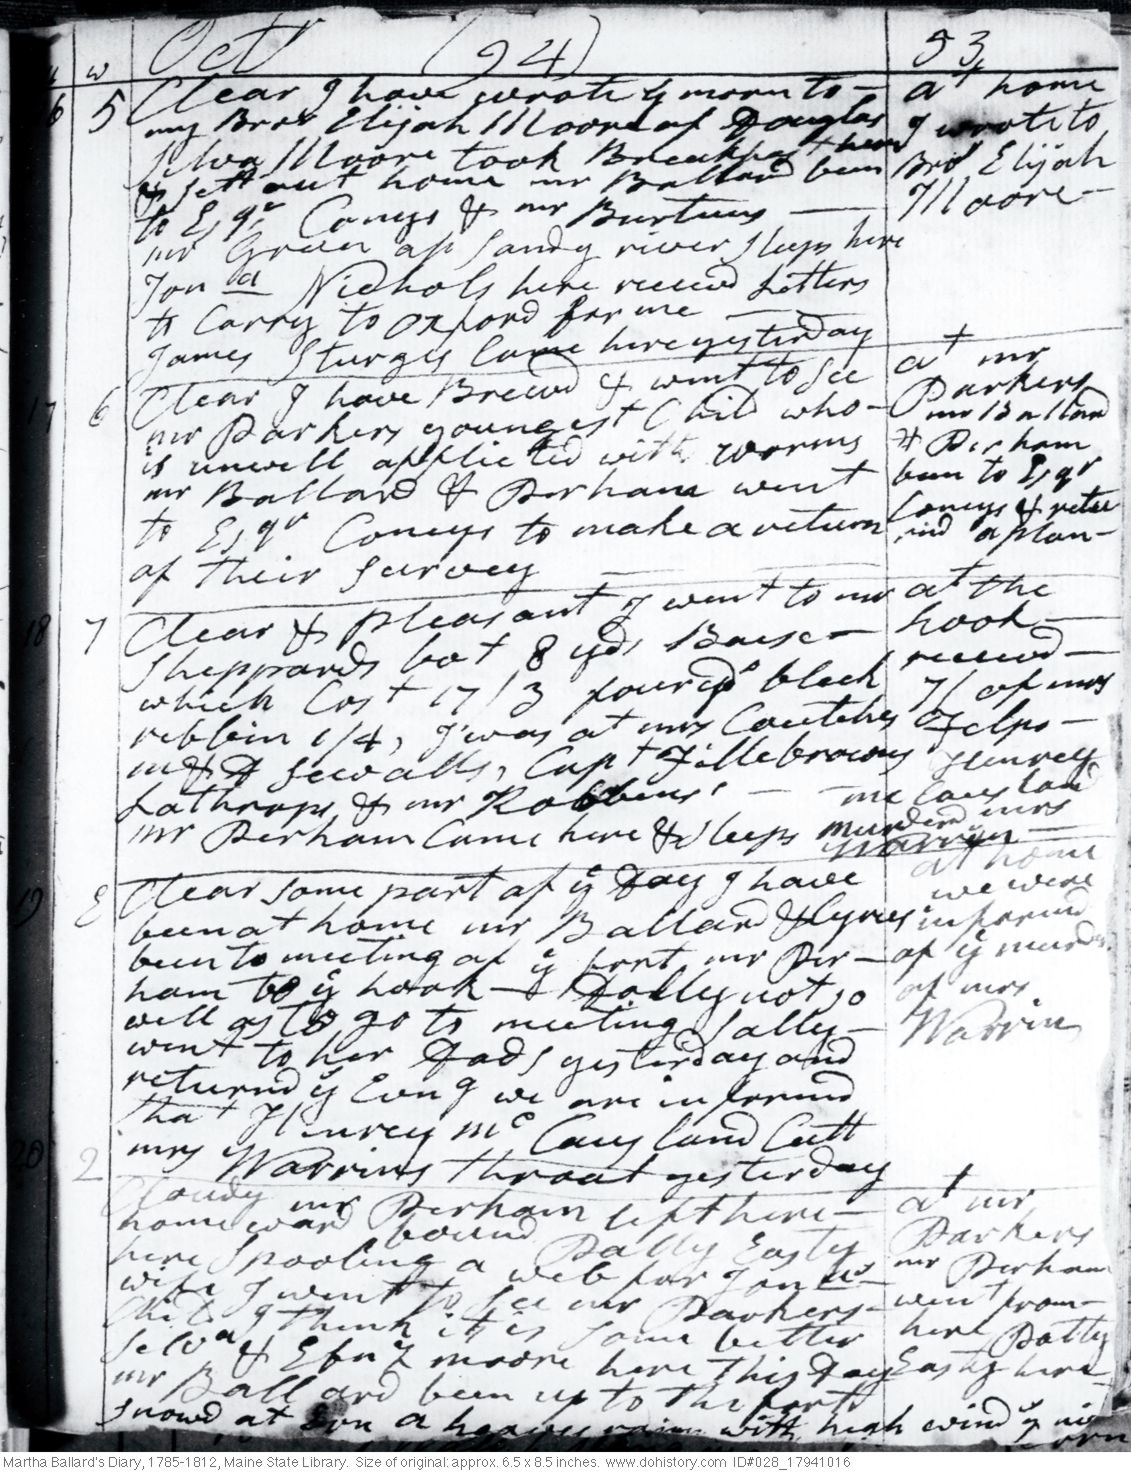 w Oct^r (94) 53
6 5 Clear I have wrote y^e morn to — at home
my Bro^r Elijah Moore of Douglas I wrote to
Silva Moore took Breakfast here Bro^r Elijah
& sett out home mr Ballard been Moore —
to Esq^r Conys & mr Burtuns —
mr Green of Sandy river sleeps here
Jon^a Nichols here receivd Letters
to Carry to oxford for me —
James Sturgis Came here yesterday
17 6 Clear I have Brewd & went to see at mr
mr Parkers youngest Child who — Parkers
is unwell afflicted with worms mr Ballard
mr Ballard & Perham went & Perham
to Esq^r Conys to make a return been to Esq^r
of their survey — Conys & retur
ind a plan —
18 7 Clear & pleasant I went to mr at the
Sheppards bot 8 yds Baise — hook —
which Cost 17/3 four yds black receivd —
ribbin 1/4, I was at mrs Coutches 7/ of mrs
m & Sewalls, Capt Fillebrowns Felps —
Lathrops & mr Robbins' — Henrey
mr Perham Came here & sleeps mc Causland
murderd mrs
Warrin —
19 E Clear some part of y^e Day I have at home
been at home mr Ballard & Cyrus we were
been to meeting at y^e fort mr Per — informd
ham to y^e hook — Dolly not so of y^e murder
well as to go to meeting Sally — of mrs
went to her Dads yesterday and Warrin
returnd y^e Evng we are informd
that Henrey m^c Causland Cutt
mrs Warrins throat yesterday
20 2 Cloudy mr Perham left here — at mr
home ward bound Dally Easty Parkers
here Spooling a web for Jon^as — mr Perham
wife I went to see mr Parkers — went from —
Child I think it is some better here Dolly
Selva & Ebn^z moore here this Day Easty here
mr Ballard been up to the forts
snowd at Evn a heavy rain with high wind y^e
Martha Ballard's Diary, 1785-1812, Maine State Library. Size of original: approx. 6.5 x 8.5 inches. www.dohistory.com ID#028_17941016